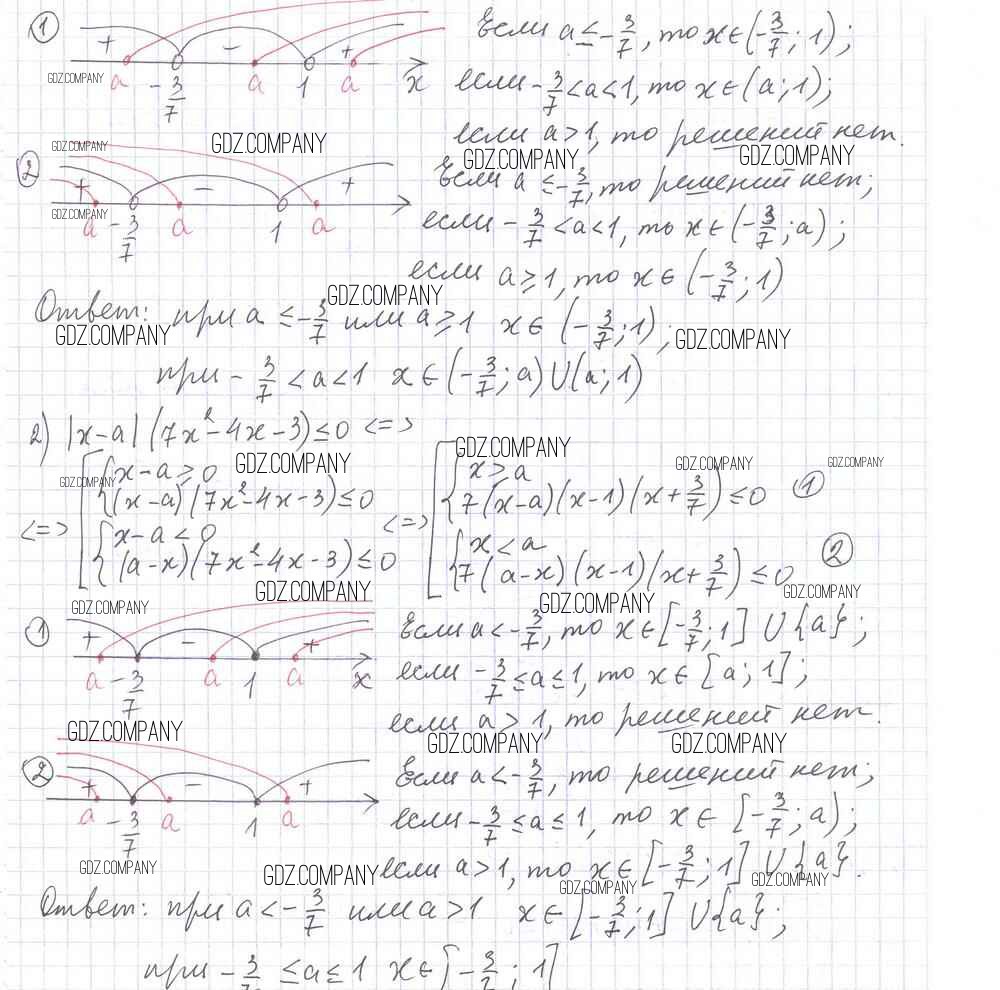 ① Если a ≤ -3/7, то x ∈ (-3/7; 1);
+ - +
a -3/7 a 1 a x
GDZ.COMPANY
если -3/7 < a < 1, то x ∈ (a; 1);
если a > 1, то решений нет.
GDZ.COMPANY GDZ.COMPANY GDZ.COMPANY GDZ.COMPANY
② Если a ≤ -3/7, то решений нет;
+ - +
GDZ.COMPANY
a -3/7 a 1 a
если -3/7 < a < 1, то x ∈ (-3/7; a);
если a ≥ 1, то x ∈ (-3/7; 1)
GDZ.COMPANY
Ответ: при a ≤ -3/7 или a ≥ 1 x ∈ (-3/7; 1);
GDZ.COMPANY GDZ.COMPANY
при -3/7 < a < 1 x ∈ (-3/7; a) ∪ (a; 1)
2) |x-a|(7x²-4x-3) ≤ 0 <=>
GDZ.COMPANY GDZ.COMPANY GDZ.COMPANY GDZ.COMPANY GDZ.COMPANY
<=> [ { x-a ≥ 0
(x-a)(7x²-4x-3) ≤ 0
{ x-a < 0
(a-x)(7x²-4x-3) ≤ 0
<=> [ { x ≥ a
7(x-a)(x-1)(x+3/7) ≤ 0 ①
{ x < a
7(a-x)(x-1)(x+3/7) ≤ 0 ②
GDZ.COMPANY GDZ.COMPANY GDZ.COMPANY GDZ.COMPANY
① Если a < -3/7, то x ∈ [-3/7; 1] ∪ {a};
+ - +
a -3/7 a 1 a x
если -3/7 ≤ a ≤ 1, то x ∈ [a; 1];
если a > 1, то решений нет.
GDZ.COMPANY GDZ.COMPANY GDZ.COMPANY
② Если a < -3/7, то решений нет;
+ - +
a -3/7 a 1 a
если -3/7 ≤ a ≤ 1, то x ∈ [-3/7; a);
если a > 1, то x ∈ [-3/7; 1] ∪ {a}.
GDZ.COMPANY GDZ.COMPANY GDZ.COMPANY GDZ.COMPANY
Ответ: при a < -3/7 или a > 1 x ∈ [-3/7; 1] ∪ {a};
при -3/7 ≤ a ≤ 1 x ∈ [-3/7; 1]